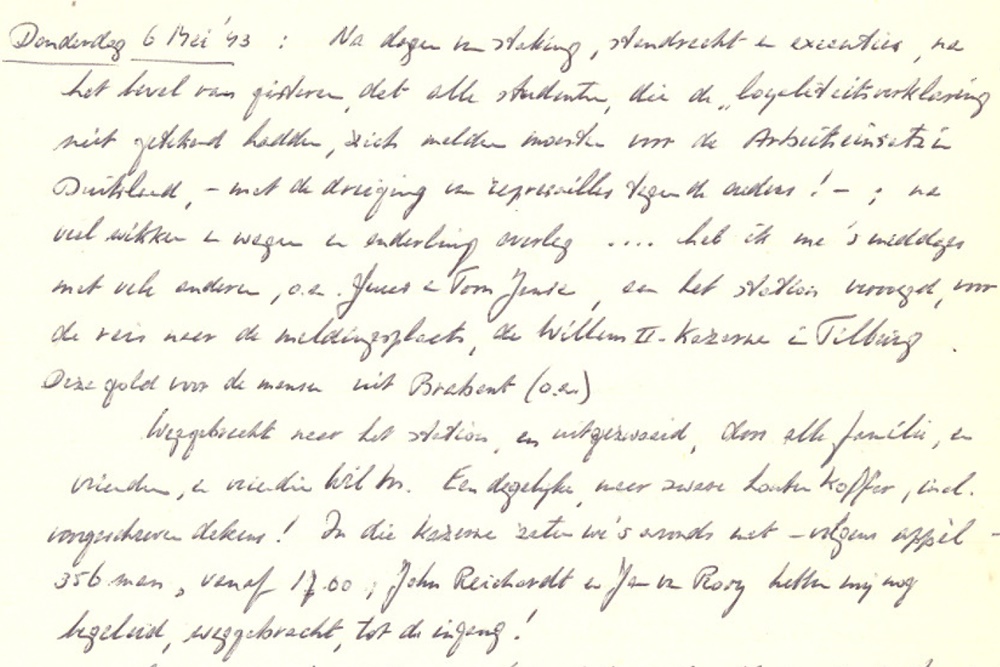 Donderdag 6 Mei '43 : Na dagen van staking, standrecht en executies, na
het bevel van gisteren, dat alle studenten, die de "loyaliteitsverklaring
niet getekend hadden, zich melden moesten voor de Arbeitseinsatz in
Duitsland, - met de dreiging van represailles tegen de ouders! - ; na
veel wikken en wegen en onderling overleg .... heb ik me 's middags
met vele anderen, o.a. en Tom, aan het station vervoegd, voor
de reis naar de meldingsplaats, de Willem II-Kazerne in Tilburg.
Deze gold voor de mensen uit Brabant (o.a.)
Weggebracht naar het station, en uitgezwaaid, door alle familie, en
vrienden, en vriendin Wil M. Een degelijke, maar zware houten koffer, incl.
voorgeschreven dekens! In die kazerne zaten we 's avonds met - volgens appèl -
356 man, vanaf 17.00; John Reichardt en Jan van Rooy hebben mij nog
begeleid, weggebracht, tot de ingang!